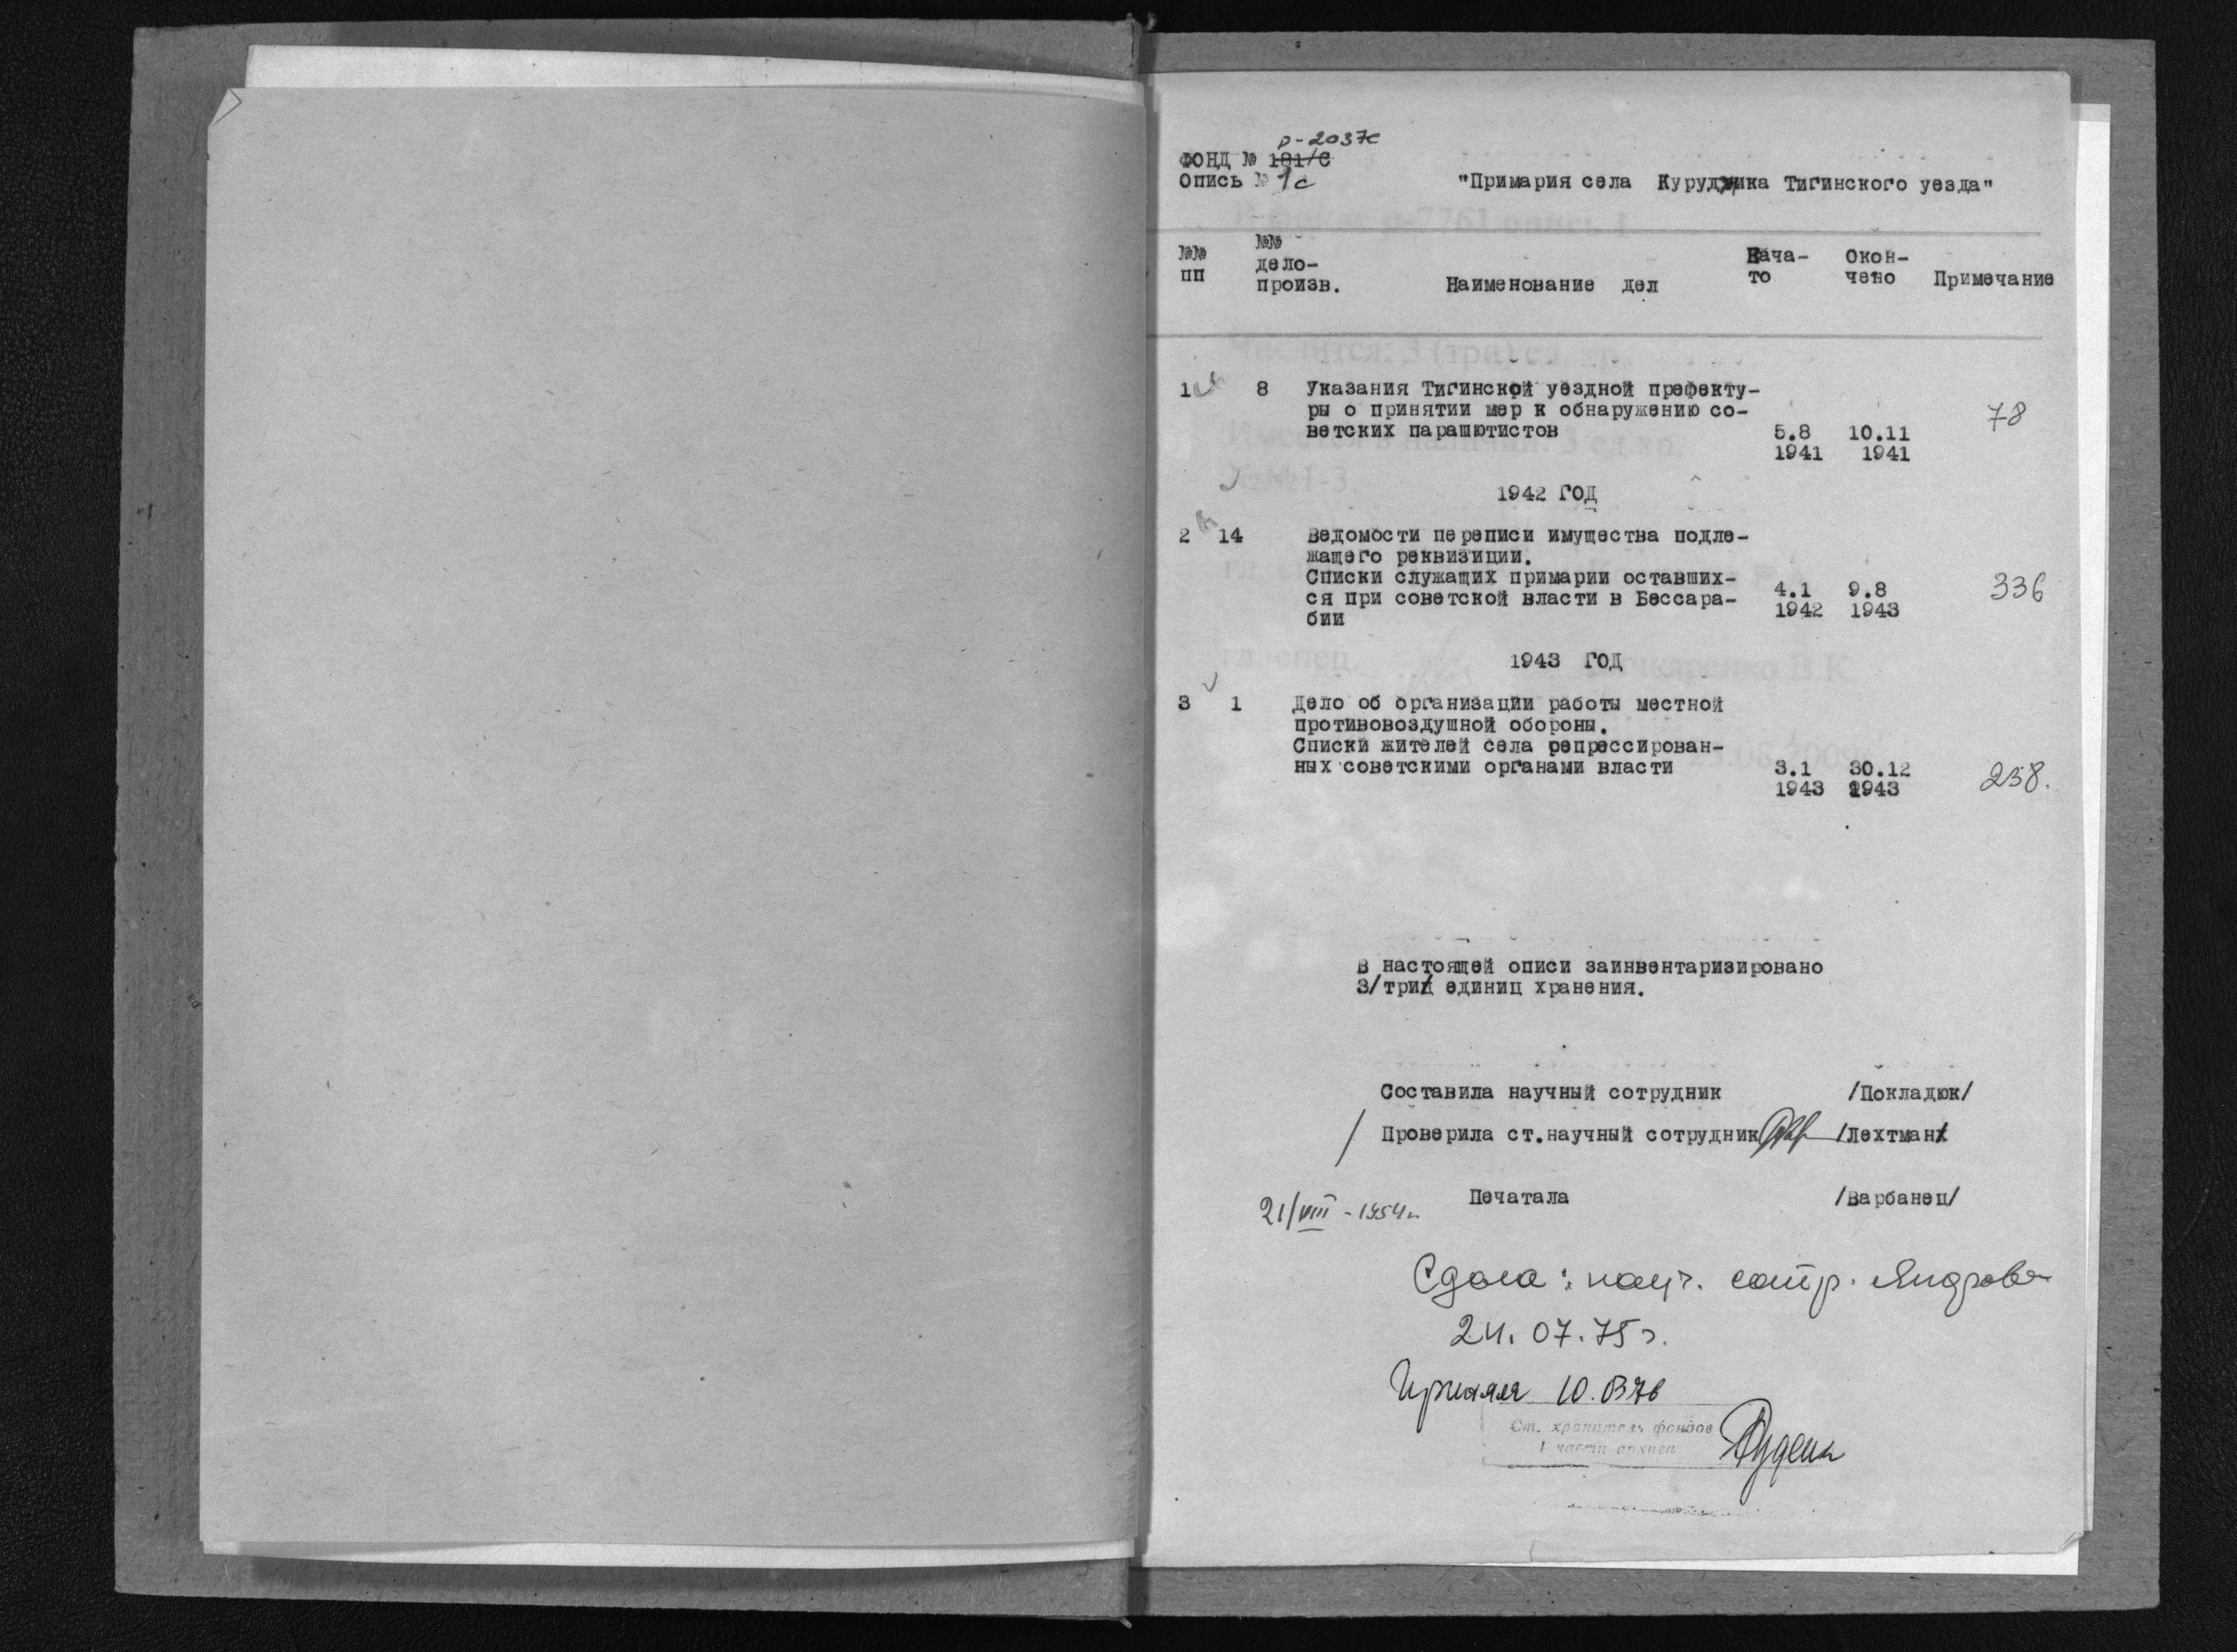 р-2037с
ФОНД № 181/С
Опись № 1с "Примария села Куруджика Тигинского уезда"
№№ пп №№ дело-произв. Наименование дел Нача-то Окон-чено Примечание
1 8 Указания Тигинской уездной префекту-
ры о принятии мер к обнаружению со-
ветских парашютистов 5.8 10.11 78
1941 1941
1942 ГОД
2 14 Ведомости переписи имущества подле-
жащего реквизиции.
Списки служащих примарии оставших-
ся при советской власти в Бессара- 4.1 9.8 336
бии 1942 1943
1943 ГОД
3 1 Дело об организации работы местной
противовоздушной обороны.
Списки жителей села репрессирован-
ных советскими органами власти 3.1 30.12 238.
1943 1943
В настоящей описи заинвентаризировано
3/три/ единиц хранения.
Составила научный сотрудник /Покладюк/
Проверила ст.научный сотрудник /Лехтман/
Печатала /Варбанец/
21/VIII - 1954г.
Сдала: науч. сотр.
24.07.75г.
Приняла 10.
Ст. хранитель фондов
1 части архива